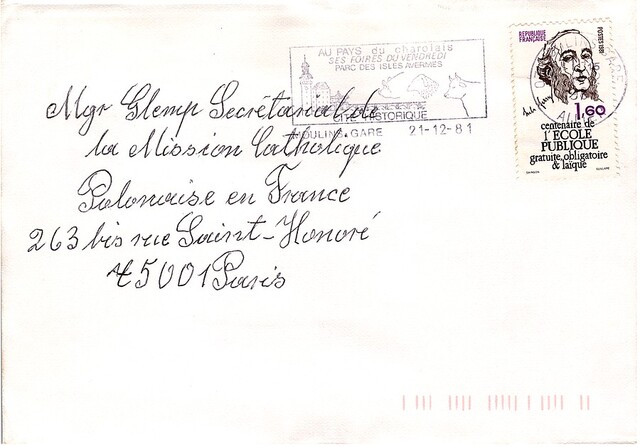 AU PAYS du charolais
SES FOIRES DU VENDREDI
PARC DES ISLES AVERMES
CITE HISTORIQUE
MOULINS GARE 21-12-81
REPUBLIQUE FRANÇAISE
POSTES 1981
1,60
centenaire de
l'ECOLE
PUBLIQUE
gratuite, obligatoire
& laïque
Mgr Glemp Secrétariat de
la Mission Catholique
Polonaise en France
263 bis rue Saint-Honoré
75001 Paris